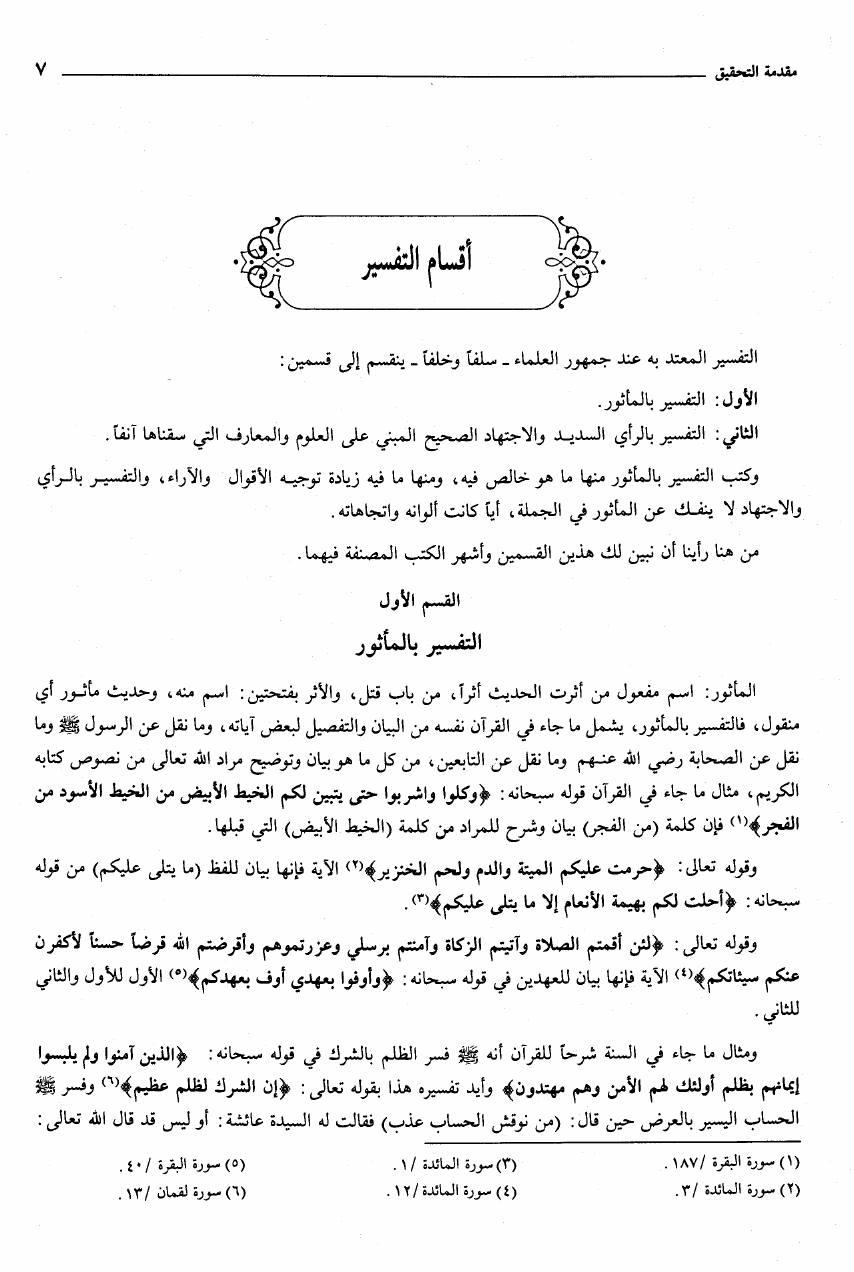 مقدمة التحقيق ٧
أقسام التفسير
التفسير المعتد به عند جمهور العلماء ـ سلفاً وخلفاً ـ ينقسم إلى قسمين:
الأول: التفسير بالمأثور.
الثاني: التفسير بالرأي السديد والاجتهاد الصحيح المبني على العلوم والمعارف التي سقناها آنفاً.
وكتب التفسير بالمأثور منها ما هو خالص فيه، ومنها ما فيه زيادة توجيه الأقوال والآراء، والتفسير بالرأي
والاجتهاد لا ينفك عن المأثور في الجملة، أياً كانت ألوانه واتجاهاته.
من هنا رأينا أن نبين لك هذين القسمين وأشهر الكتب المصنفة فيهما.
القسم الأول
التفسير بالمأثور
المأثور: اسم مفعول من أثرت الحديث أثراً، من باب قتل، والأثر بفتحتين: اسم منه، وحديث مأثور أي
منقول، فالتفسير بالمأثور، يشمل ما جاء في القرآن نفسه من البيان والتفصيل لبعض آياته، وما نقل عن الرسول ﷺ وما
نقل عن الصحابة رضي الله عنهم وما نقل عن التابعين، من كل ما هو بيان وتوضيح مراد الله تعالى من نصوص كتابه
الكريم، مثال ما جاء في القرآن قوله سبحانه: ﴿وكلوا واشربوا حتى يتبين لكم الخيط الأبيض من الخيط الأسود من
الفجر﴾(١) فإن كلمة (من الفجر) بيان وشرح للمراد من كلمة (الخيط الأبيض) التي قبلها.
وقوله تعالى: ﴿حرمت عليكم الميتة والدم ولحم الخنزير﴾(٢) الآية فإنها بيان للفظ (ما يتلى عليكم) من قوله
سبحانه: ﴿أحلت لكم بهيمة الأنعام إلا ما يتلى عليكم﴾(٣).
وقوله تعالى: ﴿لئن أقمتم الصلاة وآتيتم الزكاة وآمنتم برسلي وعزرتموهم وأقرضتم الله قرضاً حسناً لأكفرن
عنكم سيئاتكم﴾(٤) الآية فإنها بيان للعهدين في قوله سبحانه: ﴿وأوفوا بعهدي أوف بعهدكم﴾(٥) الأول للأول والثاني
للثاني.
ومثال ما جاء في السنة شرحاً للقرآن أنه ﷺ فسر الظلم بالشرك في قوله سبحانه: ﴿الذين آمنوا ولم يلبسوا
إيمانهم بظلم أولئك لهم الأمن وهم مهتدون﴾ وأيد تفسيره هذا بقوله تعالى: ﴿إن الشرك لظلم عظيم﴾(٦) وفسر ﷺ
الحساب اليسير بالعرض حين قال: (من نوقش الحساب عذب) فقالت له السيدة عائشة: أو ليس قد قال الله تعالى:
(١) سورة البقرة /١٨٧. (٣) سورة المائدة /١. (٥) سورة البقرة /٤٠.
(٢) سورة المائدة /٣. (٤) سورة المائدة /١٢. (٦) سورة لقمان /١٣.